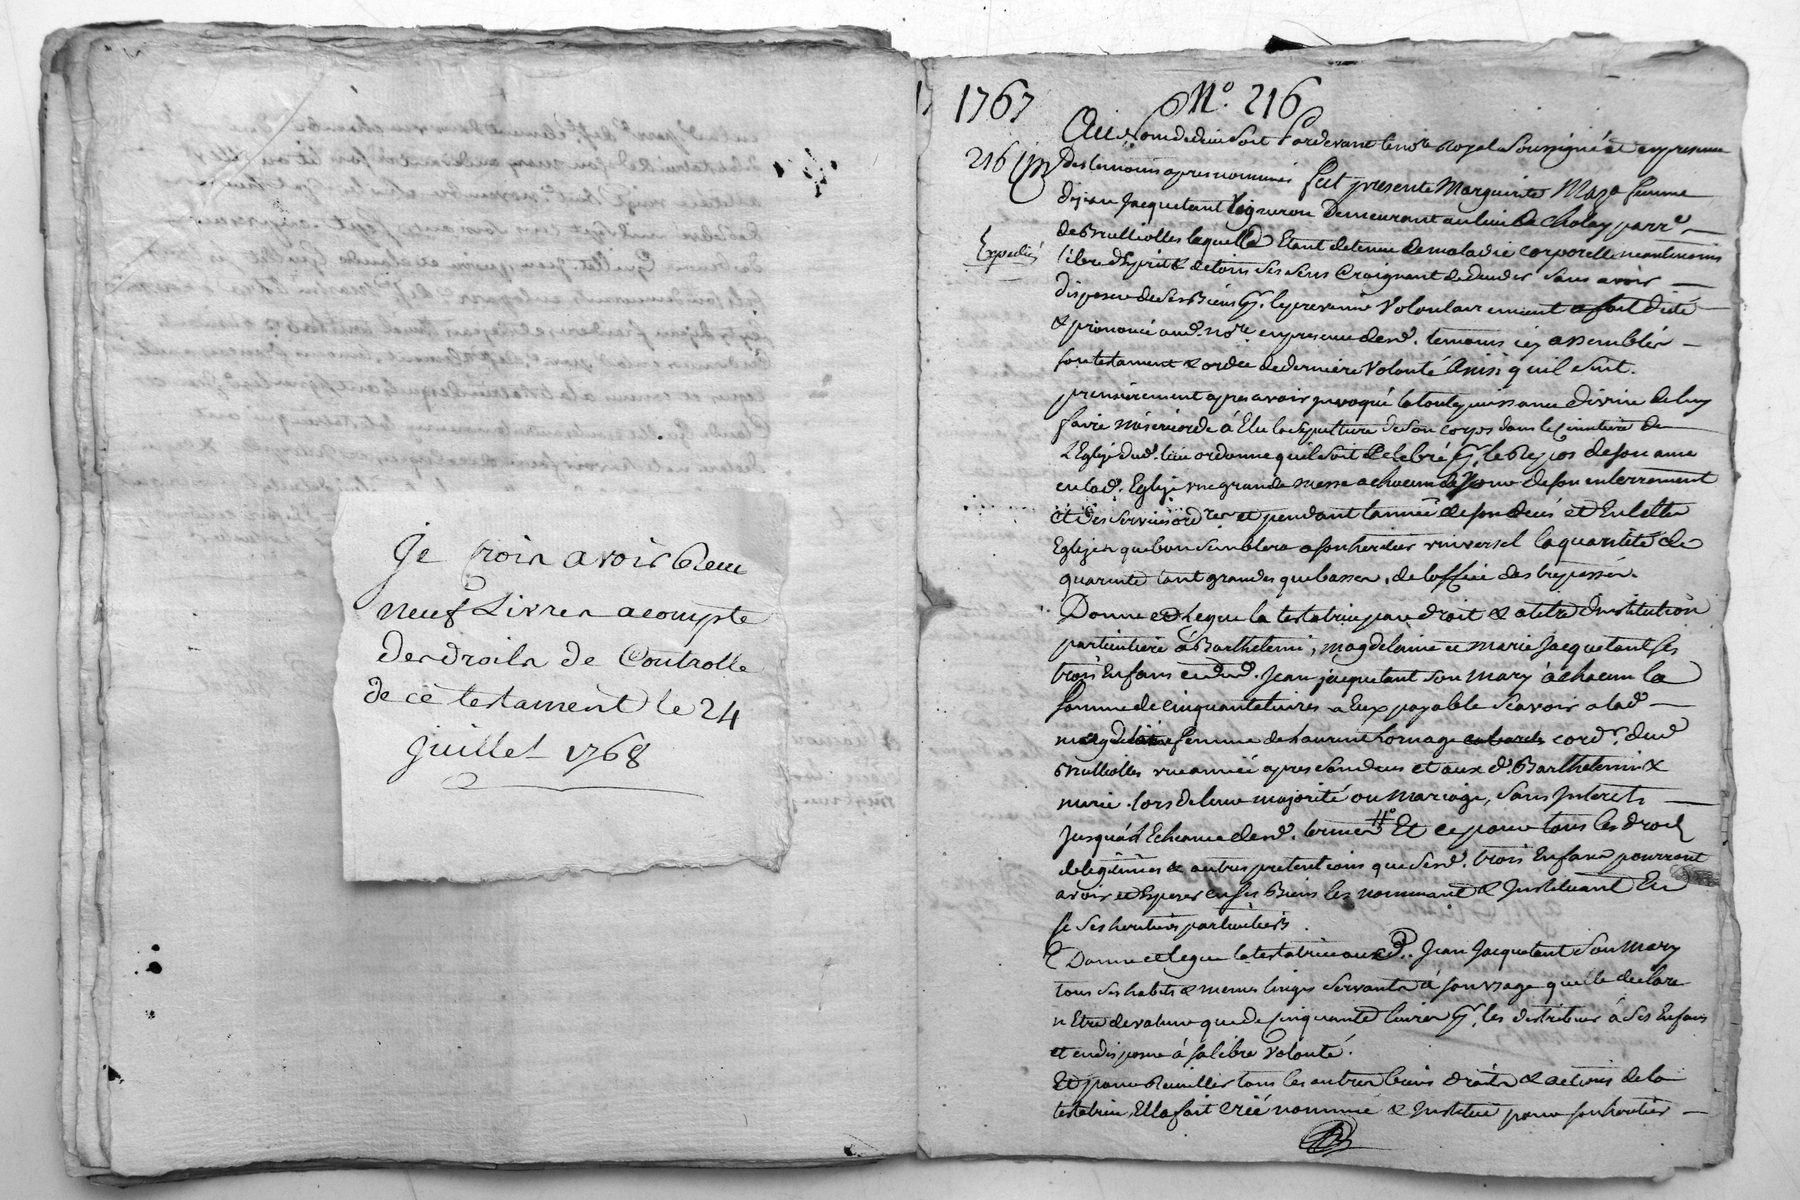 Je crois avoir Receu
neuf Livres acompte
des droits de Controlle
de ce testament le 24
Juillet 1768
1767 N.º 216
216
Expedié
Au Nom de dieu soit Pardevant le no.re Royal Soussigné et en presence
des temoins apres nommés fut presente Marguerite Maza femme
de jean Jacquetant Vigneron Demeurant au lieu de Cholay parr.e
de Brulliolles laquelle Etant detenue de maladie corporelle neantmoins
libre d'Esprit & de tous ses sens Craignant de deceder sans avoir
disposé de ses Biens p.r le prevenir Volontairement a fait dicté
& prononcé aud. no.re en presence desd. temoins icy assemblés
son testament & ordce de derniere Volonté Ainsi quil suit.
premierement apres avoir invoqué la toute puissance divine de luy
faire misericorde à Elu la sepulture de son corps dans le Cimetiere de
L'Eglise dud. lieu ordonne quil soit Celebré p.r le Repos de son ame
en lad. Eglise une grande messe a chacun de jour de son enterrement
et des services ord.res et pendant l'année de son deces et En telle
Eglise que bon semblera a son heritier universel la quantité de
quarente tant grandes que basses, de l'office des trepassés.
Donne et Legue la testatrice par droit & a titre d'institution
particuliere à Barthelemi, magdelaine et marie Jacquetant ses
trois Enfans et dud. Jean jacquetant son mary à chacun la
somme de cinquante livres a Eux payable Scavoir a lad.
magdelaine femme de Laurent homage cord.r dud.
Brulliolles une année apres son deces et aux d. Barthelemi &
marie lors de leur majorité ou Mariage, Sans Interets
Jusquà l'Echeance desd. termes # Et ce pour tous les droits
de legitimes & autres pretentions que sesd. trois Enfans pourront
avoir et Esperer en ses Biens les nommant & Instituant En
ce ses heritiers particuliers.
Donne et legue la testatrice aud. Jean Jacquetant son Mary
tous ses habits & menus linges servants à son usage quelle declare
n'Etre de valeur que de Cinquante livres p.r les distribuer à ses Enfans
et en disposer à sa libre Volonté.
Et pour Recueillir tous les autres biens droits & actions de la
testatrice Ella fait créé nommé & Institué pour son heritier